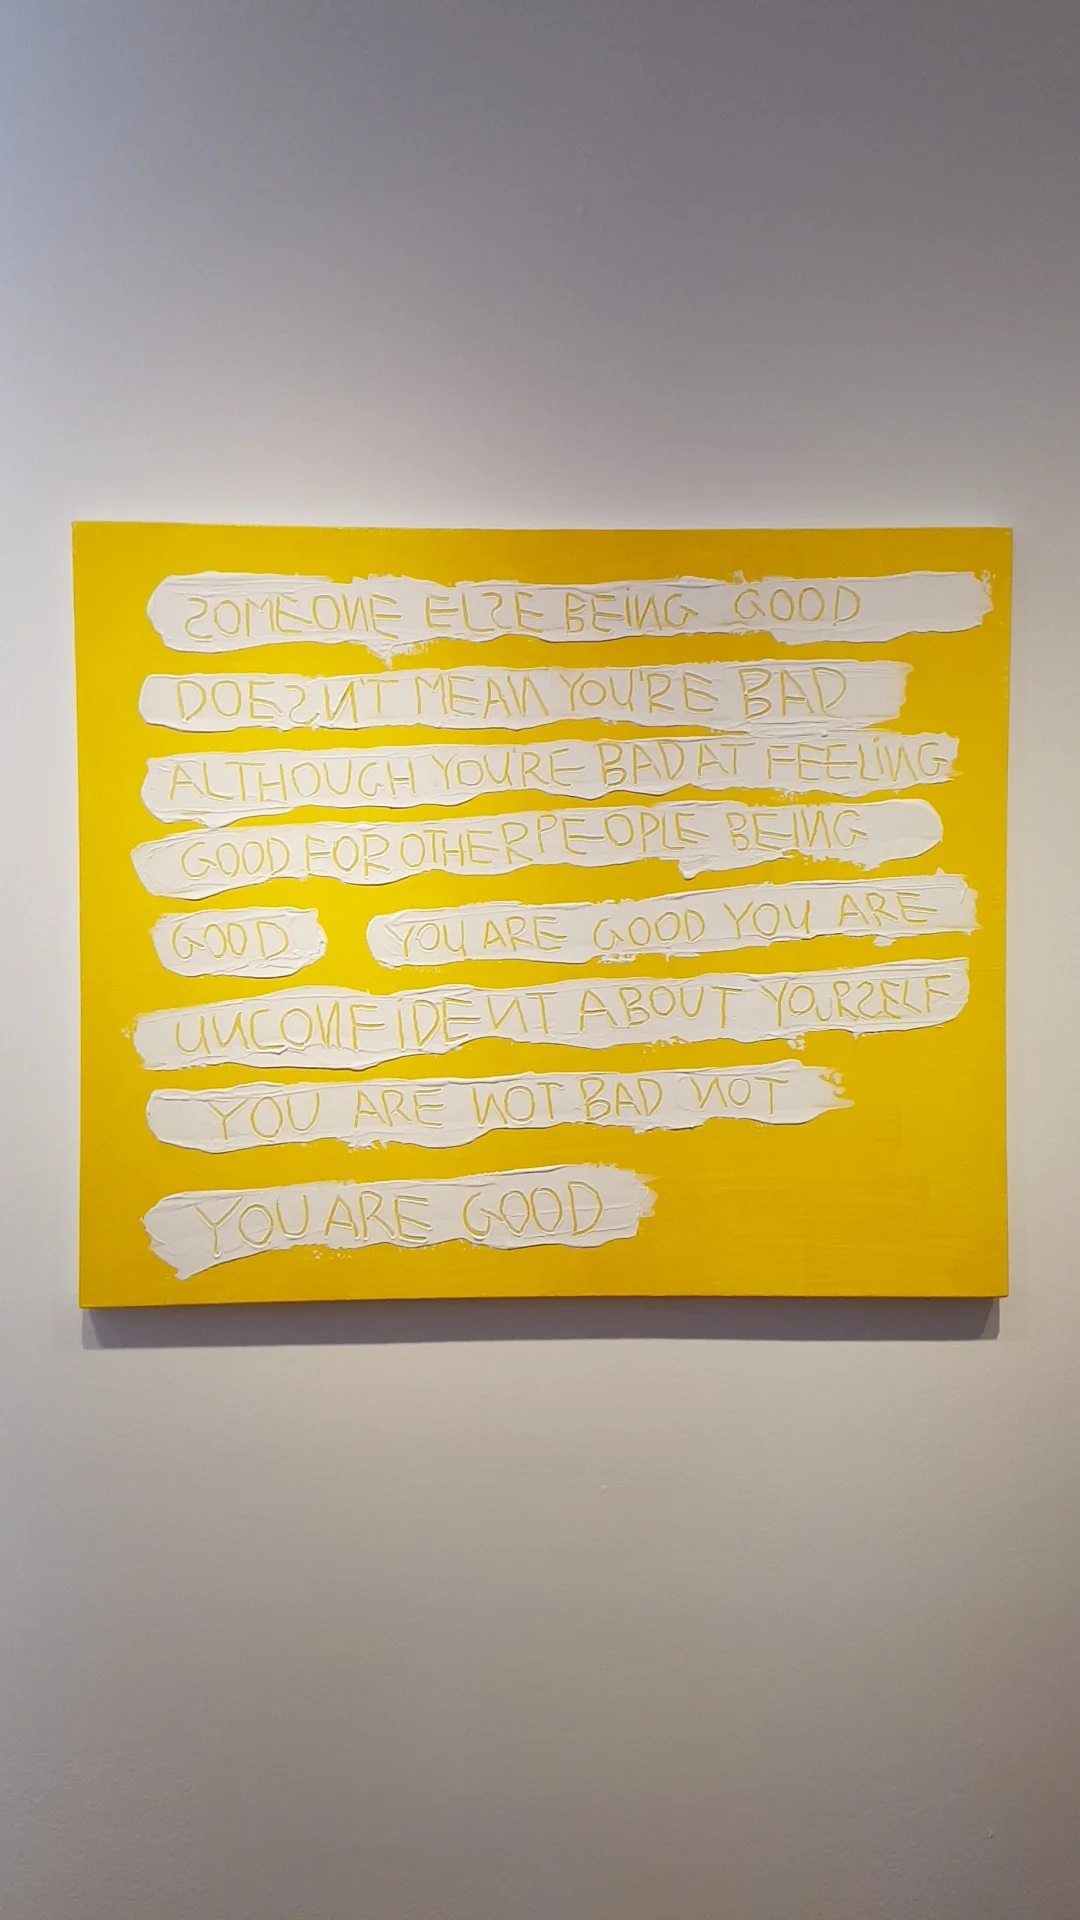 SOMEONE ELSE BEING GOOD
DOESN'T MEAN YOU'RE BAD
ALTHOUGH YOU'RE BAD AT FEELING
GOOD FOR OTHER PEOPLE BEING
GOOD YOU ARE GOOD YOU ARE
UNCONFIDENT ABOUT YOURSELF
YOU ARE NOT BAD NOT
YOU ARE GOOD